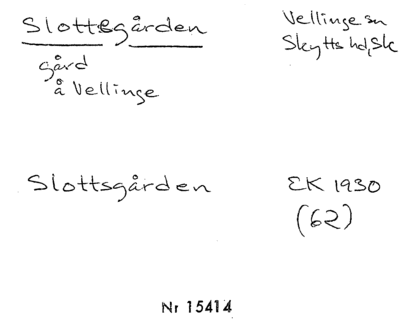 Slottsgården
Vellinge sn
Skytts hd, Sk
gård
å Vellinge
Slottsgården
EK 1930
(62)
Nr 15414